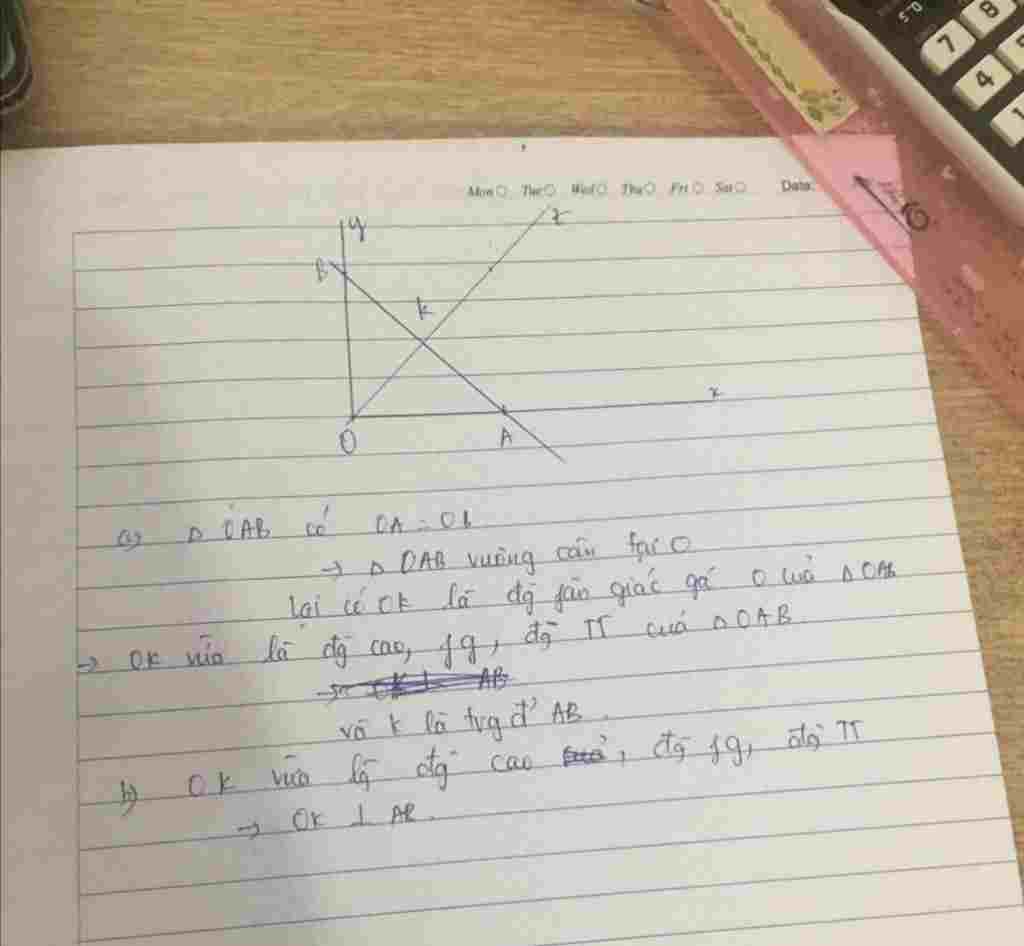 5.0
8
7
4
1
Mon Tue Wed Thu Fri Sat Date:
y
z
B
k
x
O
A
a) Δ OAB có OA = OB
→ Δ OAB vuông cân tại O
lại có OK là đg fân giác gá O của Δ OAB
→ OK vừa là đg cao, fg, đg TT của Δ OAB
và K là trg đ' AB.
b) OK vừa là đg cao, đg fg, đg TT
→ OK ⊥ AB.